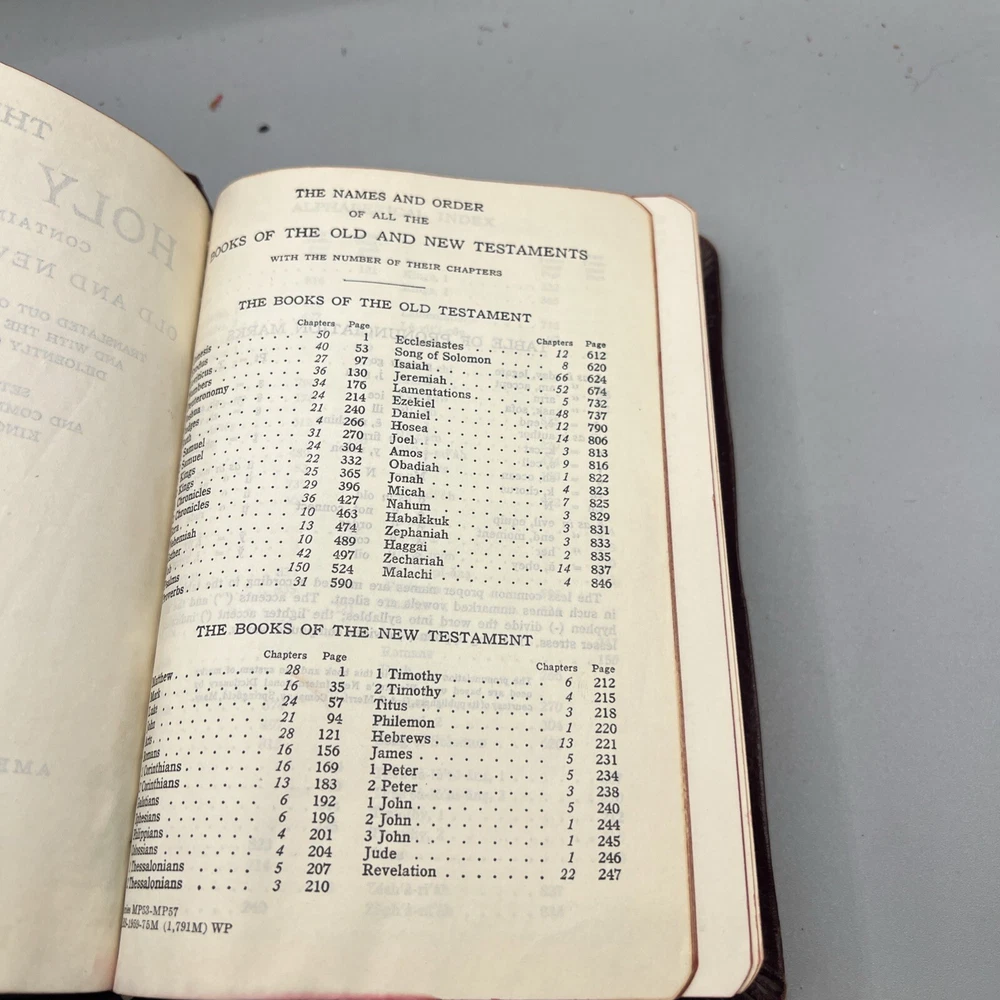 THE NAMES AND ORDER
OF ALL THE
BOOKS OF THE OLD AND NEW TESTAMENTS
WITH THE NUMBER OF THEIR CHAPTERS
THE BOOKS OF THE OLD TESTAMENT
Chapters Page
nesis 50 1
odus 40 53
viticus 27 97
mbers 36 130
uteronomy 34 176
shua 24 214
dges 21 240
uth 4 266
Samuel 31 270
Samuel 24 304
Kings 22 332
Kings 25 365
Chronicles 29 396
Chronicles 36 427
zra 10 463
hemiah 13 474
sther 10 489
ob 42 497
salms 150 524
roverbs 31 590
Chapters Page
Ecclesiastes 12 612
Song of Solomon 8 620
Isaiah 66 624
Jeremiah 52 674
Lamentations 5 732
Ezekiel 48 737
Daniel 12 790
Hosea 14 806
Joel 3 813
Amos 9 816
Obadiah 1 822
Jonah 4 823
Micah 7 825
Nahum 3 829
Habakkuk 3 831
Zephaniah 3 833
Haggai 2 835
Zechariah 14 837
Malachi 4 846
THE BOOKS OF THE NEW TESTAMENT
Chapters Page
Matthew 28 1
Mark 16 35
Luke 24 57
John 21 94
Acts 28 121
Romans 16 156
Corinthians 16 169
Corinthians 13 183
Galatians 6 192
Ephesians 6 196
Philippians 4 201
Colossians 4 204
Thessalonians 5 207
Thessalonians 3 210
Chapters Page
1 Timothy 6 212
2 Timothy 4 215
Titus 3 218
Philemon 1 220
Hebrews 13 221
James 5 231
1 Peter 5 234
2 Peter 3 238
1 John 5 240
2 John 1 244
3 John 1 245
Jude 1 246
Revelation 22 247
MP53-MP57
1959-75M (1,791M) WP